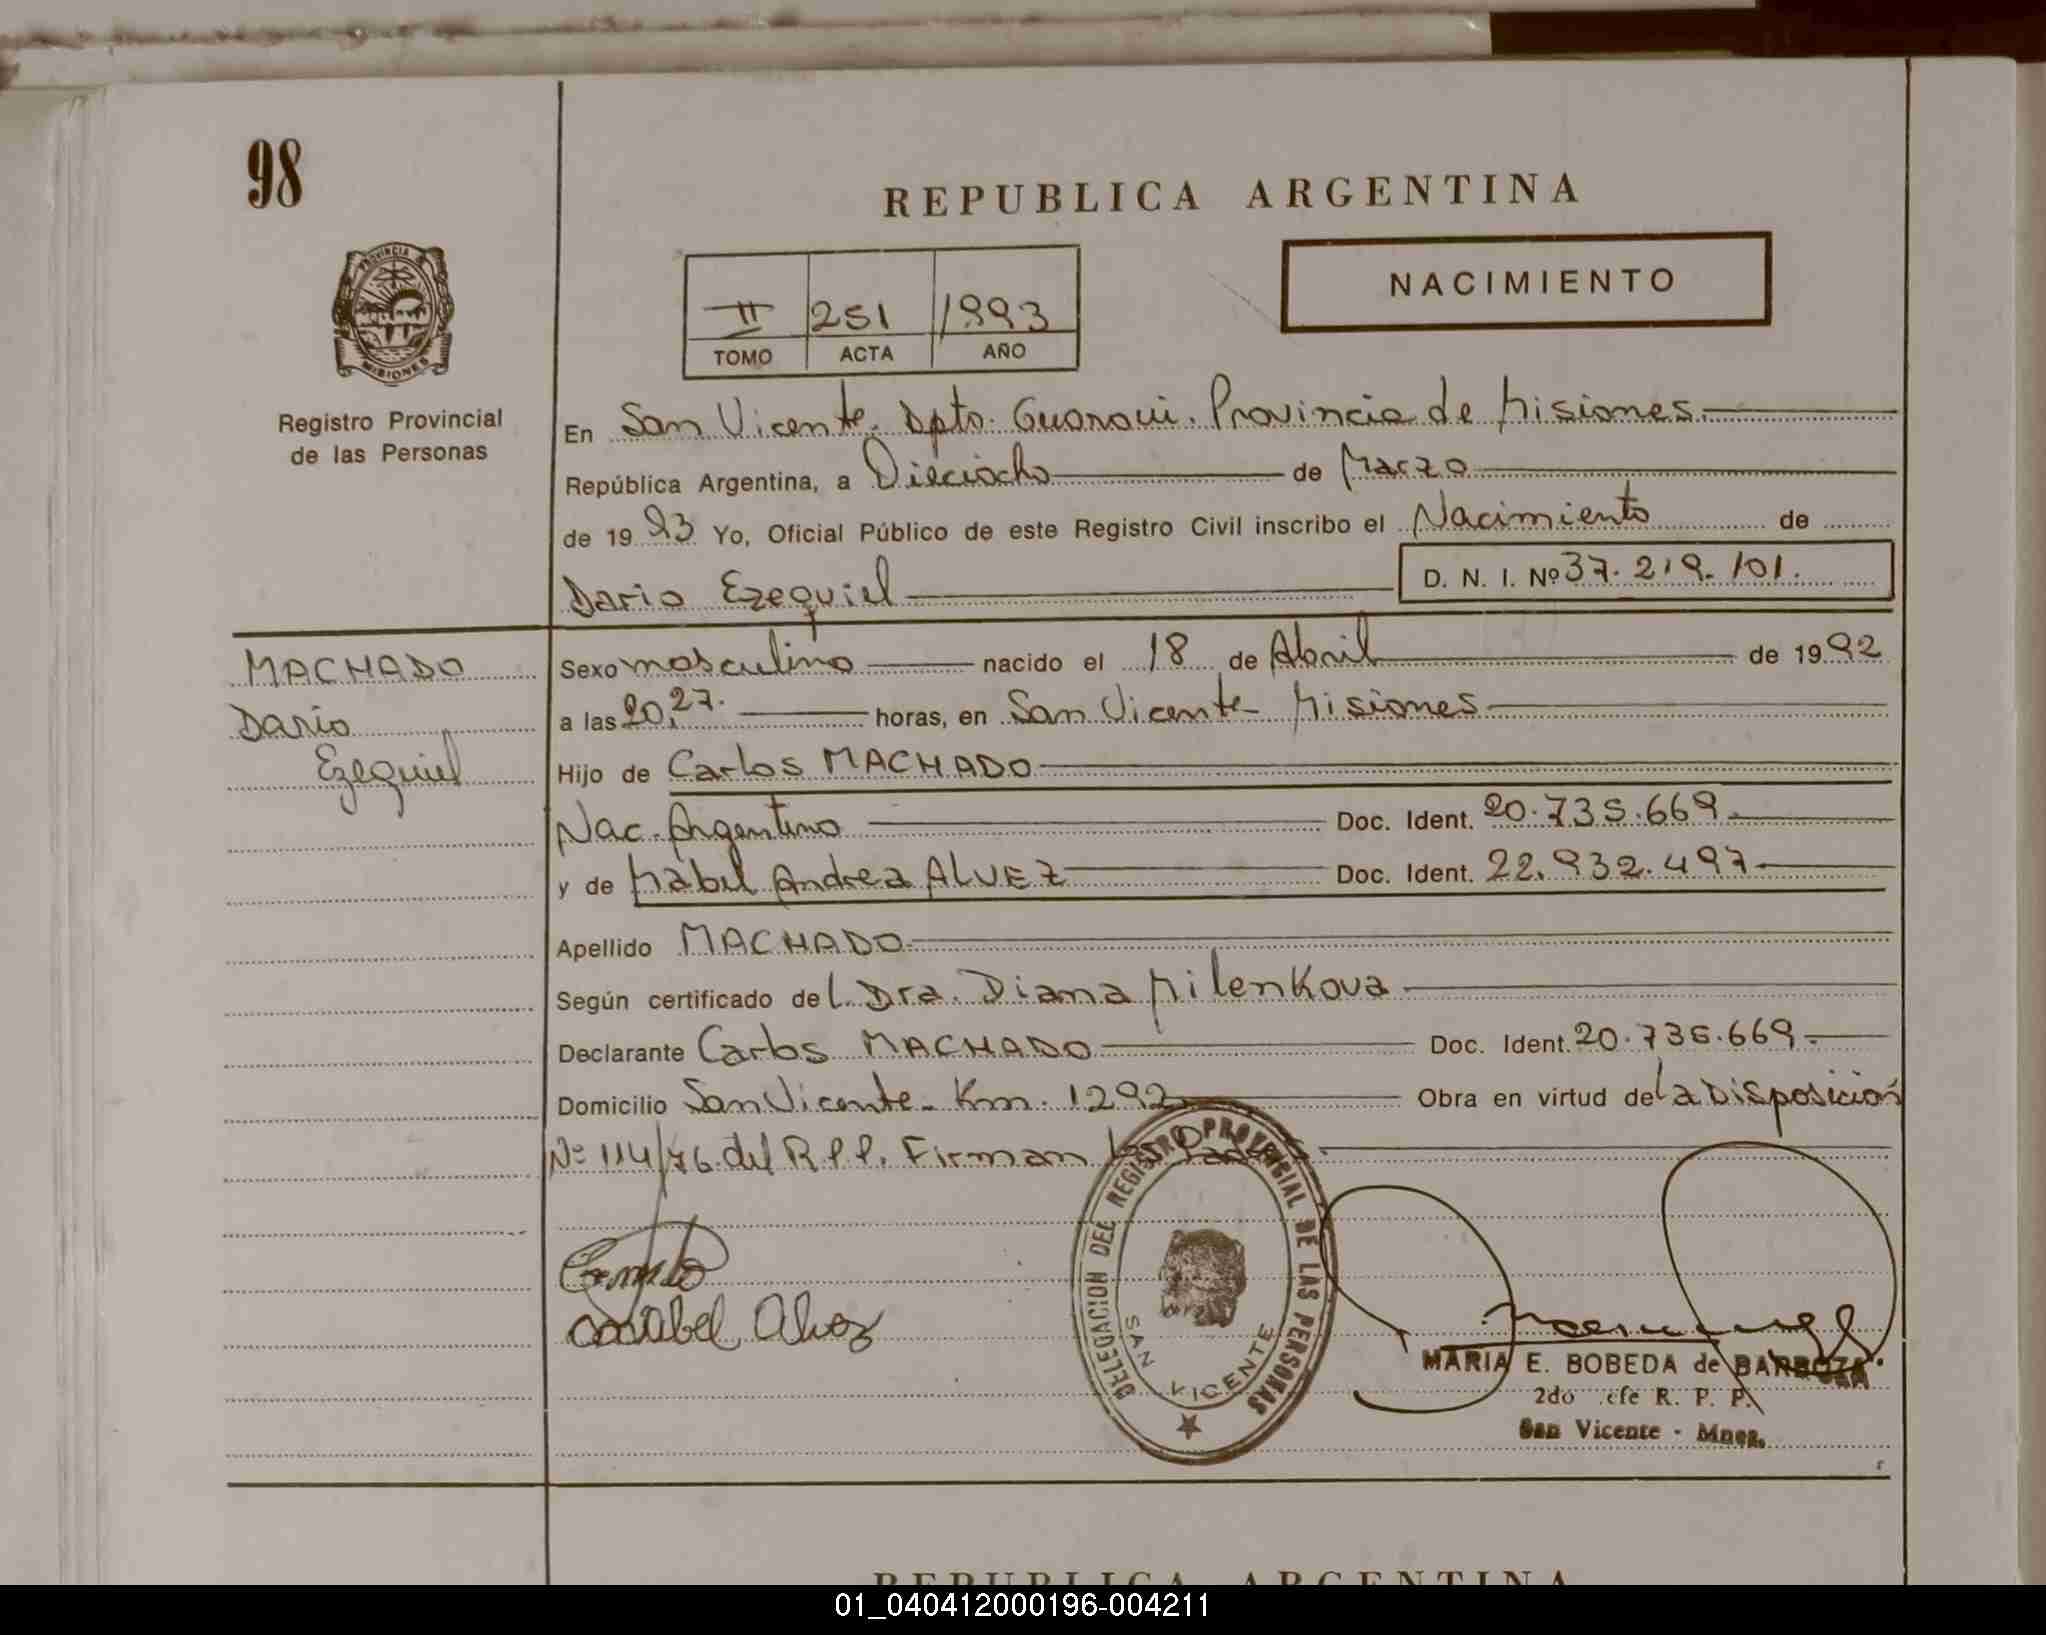 98
REPUBLICA ARGENTINA
PROVINCIA
MISIONES
NACIMIENTO
II 251 1993
TOMO ACTA AÑO
Registro Provincial
de las Personas
En San Vicente. Dpto. Guarani. Provincia de Misiones
República Argentina, a Dieciocho de Marzo
de 1993 Yo, Oficial Público de este Registro Civil inscribo el Nacimiento de
Dario Ezequiel D. N. I. Nº 37.219.101.
MACHADO
Dario
Ezequiel
Sexo masculino nacido el 18 de Abril de 1992
a las 20,27. horas, en San Vicente Misiones
Hijo de Carlos MACHADO
Nac. Argentino Doc. Ident. 20.735.669.
y de Mabel Andrea ALVEZ Doc. Ident. 22.932.497
Apellido MACHADO
Según certificado del Dra. Diana Milenkova
Declarante Carlos MACHADO Doc. Ident. 20.735.669.
Domicilio San Vicente. Km. 1292 Obra en virtud de la Disposición
Nº 114/76 del R.P.P. Firman los Padres.
DELEGACION DEL REGISTRO PROVINCIAL DE LAS PERSONAS
SAN VICENTE
Mabel Alvez
MARIA E. BOBEDA de BARBOZA
2do Jefe R. P. P.
San Vicente - Mnes.
REPUBLICA ARGENTINA
01_040412000196-004211